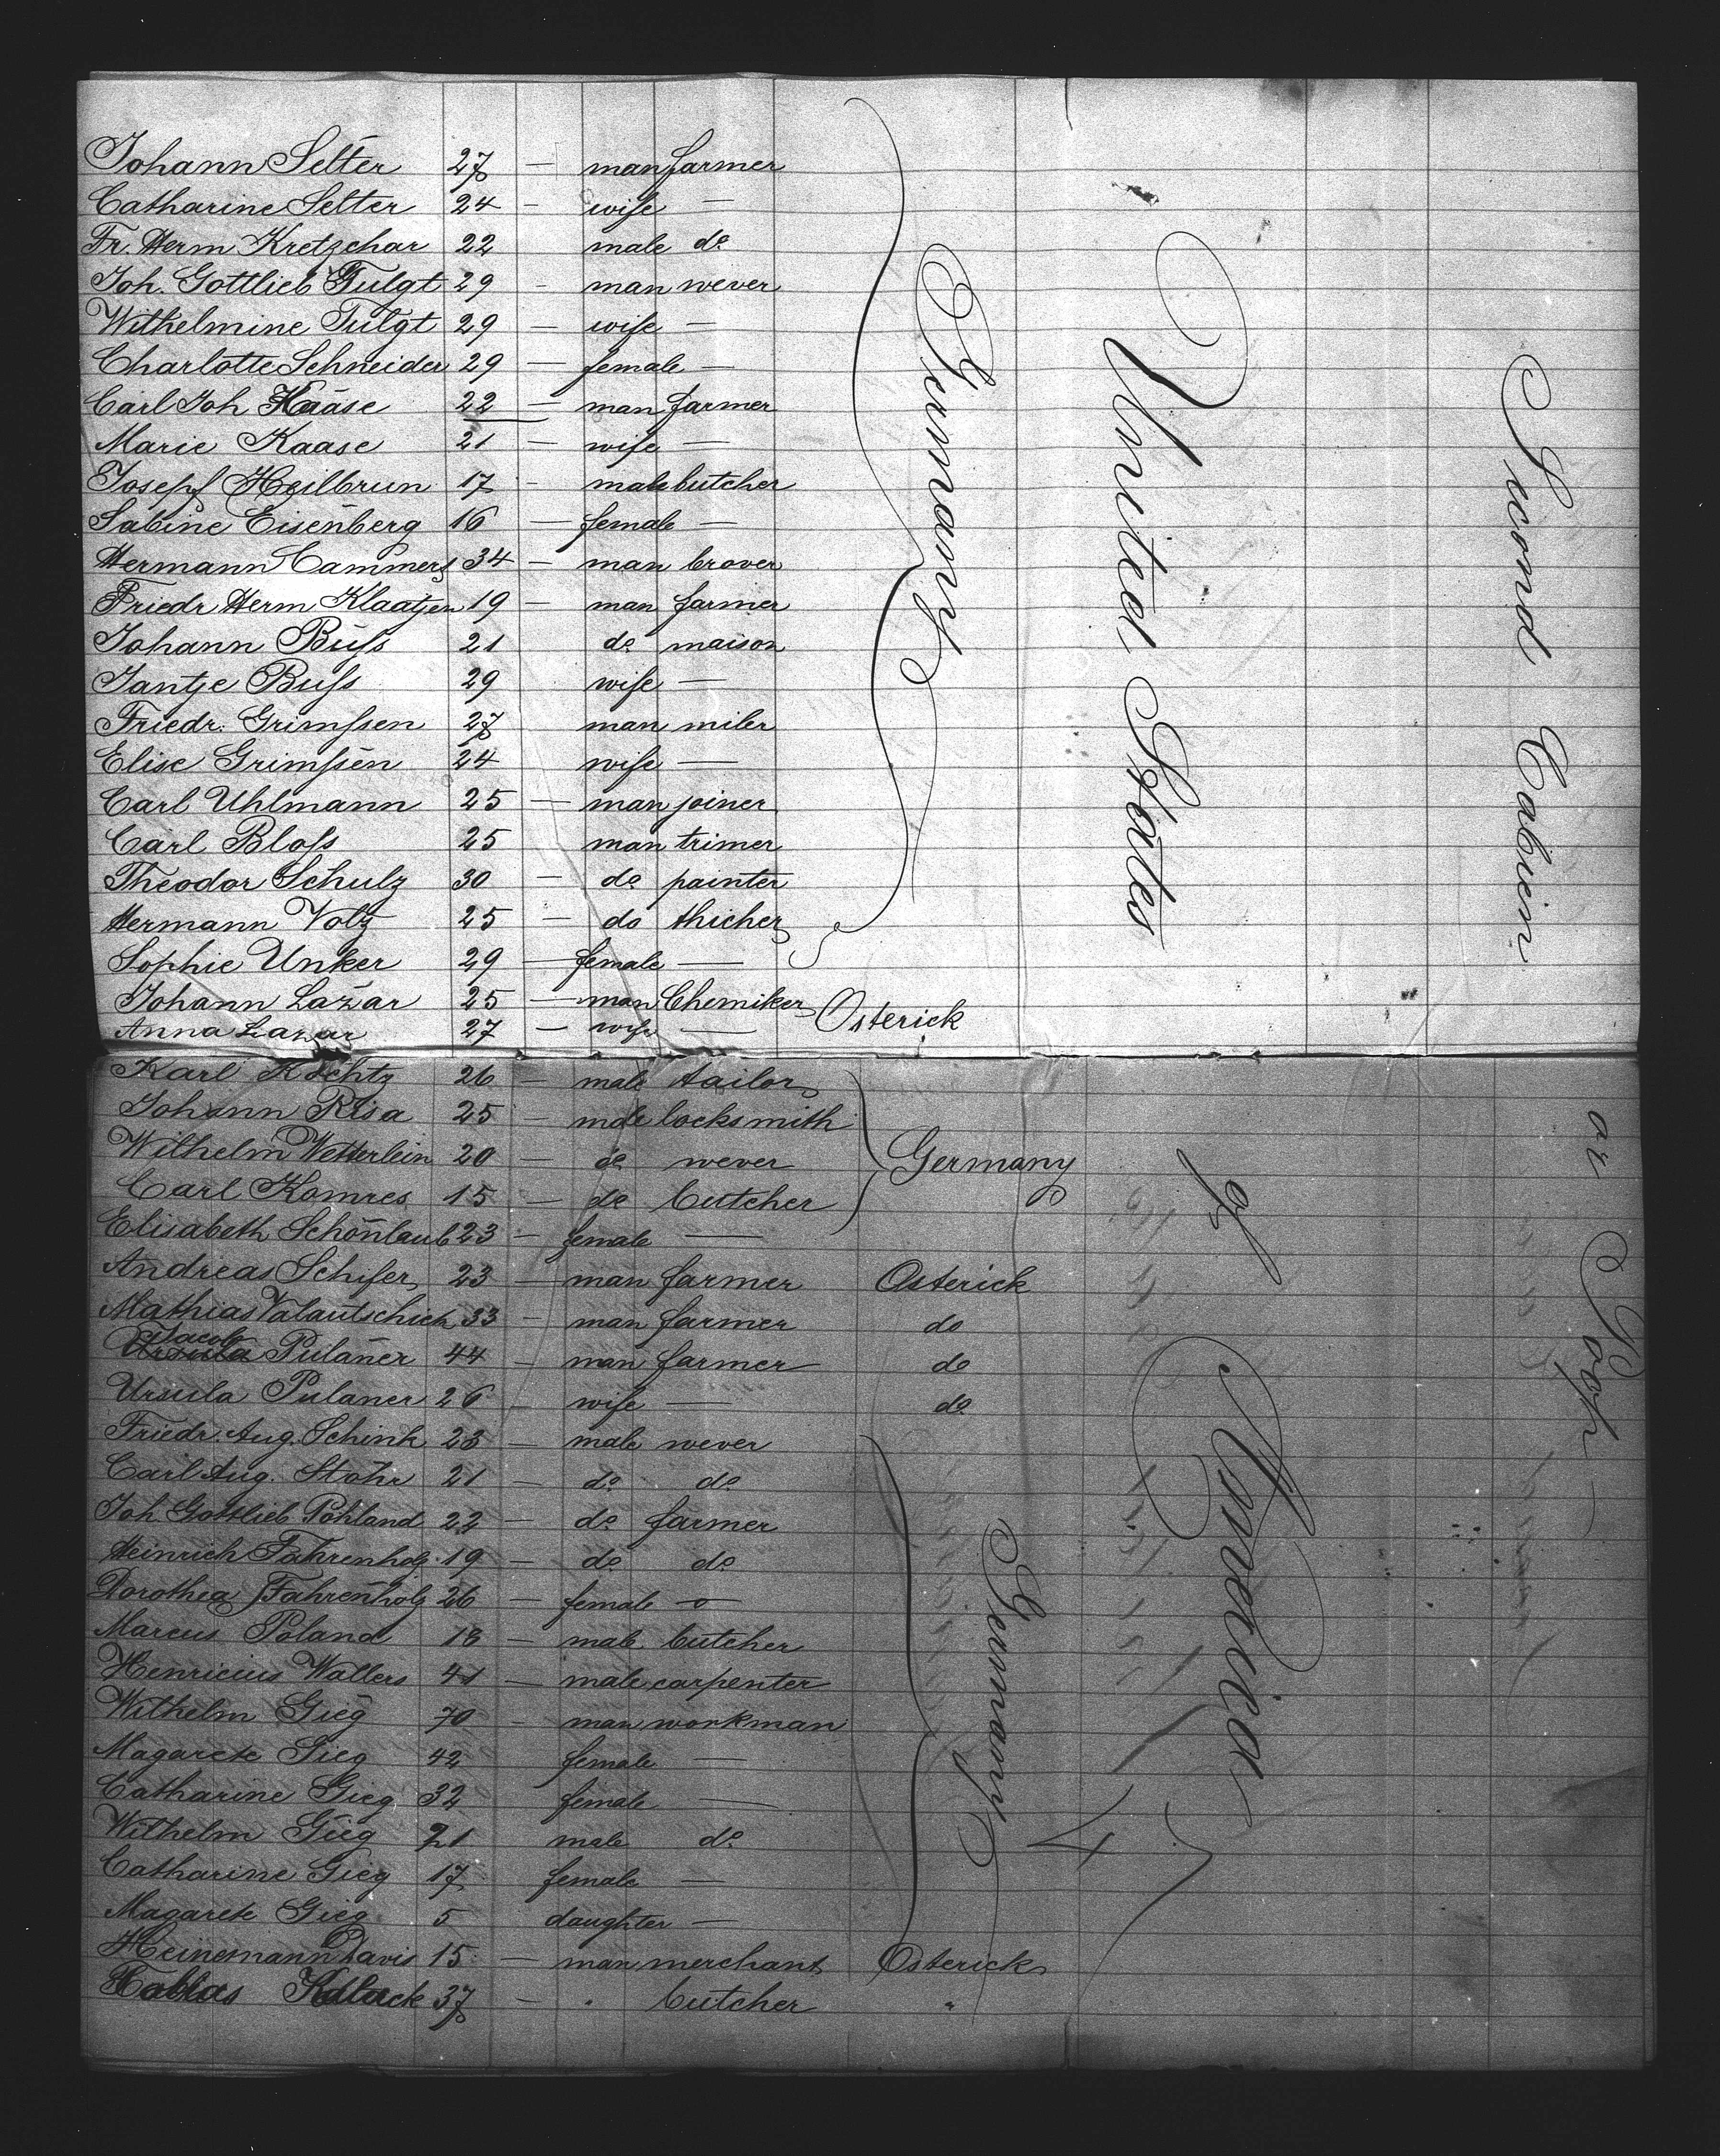 Johann Selter 27 — man farmer
Catharine Selter 24 - wife —
Fr. Herm Kretzchar 22 male do
Joh. Gottlieb Tulgt 29 - man wever
Wilhelmine Tulgt 29 — wife —
Charlotte Schneider 29 — female —
Carl Joh Kaase 22 — man farmer
Marie Kaase 21 — wife —
Josepf Heilbrun 17 - male butcher
Sabine Eisenberg 16 — female —
Hermann Cammers 34 — man brover
Friedr Herm Klaatjen 19 — man farmer
Johann Buſs 21 do maison
Jantje Buſs 29 wife —
Friedr. Grimſsen 27 man miler
Elise Grimſsen 24 wife —
Carl Uhlmann 25 — man joiner
Carl Bloſs 25 man trimer
Theodor Schulz 30 — do painter
Hermann Volz 25 — do thicher
Sophie Unker 29 — female —
Germany
Johann Lazar 25 — man Chemiker Osterick
Anna Lazar 27 — wife —
Karl 26 — male tailor
Johann Risa 25 — male locksmith
Wilhelm Wetterlein 20 — do wever Germany
Carl Komres 15 — do butcher
Elisabeth Schönlaub 23 — female —
Andreas Schifer 23 — man farmer Osterick
Mathias Valautschich 33 — man farmer do
Jacob Pulaner 44 — man farmer do
Ursula Pulaner 26 — wife — do
Friedr. Aug. Schink 23 — male wever
Carl Aug. Stöhr 21 — do do
Joh. Gottlieb Pohland 22 — do farmer
Heinrich Fahrenholz 19 — do do
Dorothea Fahrenholz 26 — female —
Marcus Poland 18 — male butcher
Henricius Wallers 41 — male carpenter
Wilhelm Gieg 70 — man workman
Magarete Gieg 42 female —
Catharine Gieg 32 female —
Wilhelm Gieg 21 male do
Catharine Gieg 17 female —
Magarete Gieg 5 daughter —
Germany
Heinemann Davis 15 — man merchant Osterick
Tobias 37 — " butcher "
United States of America
Second Cabin